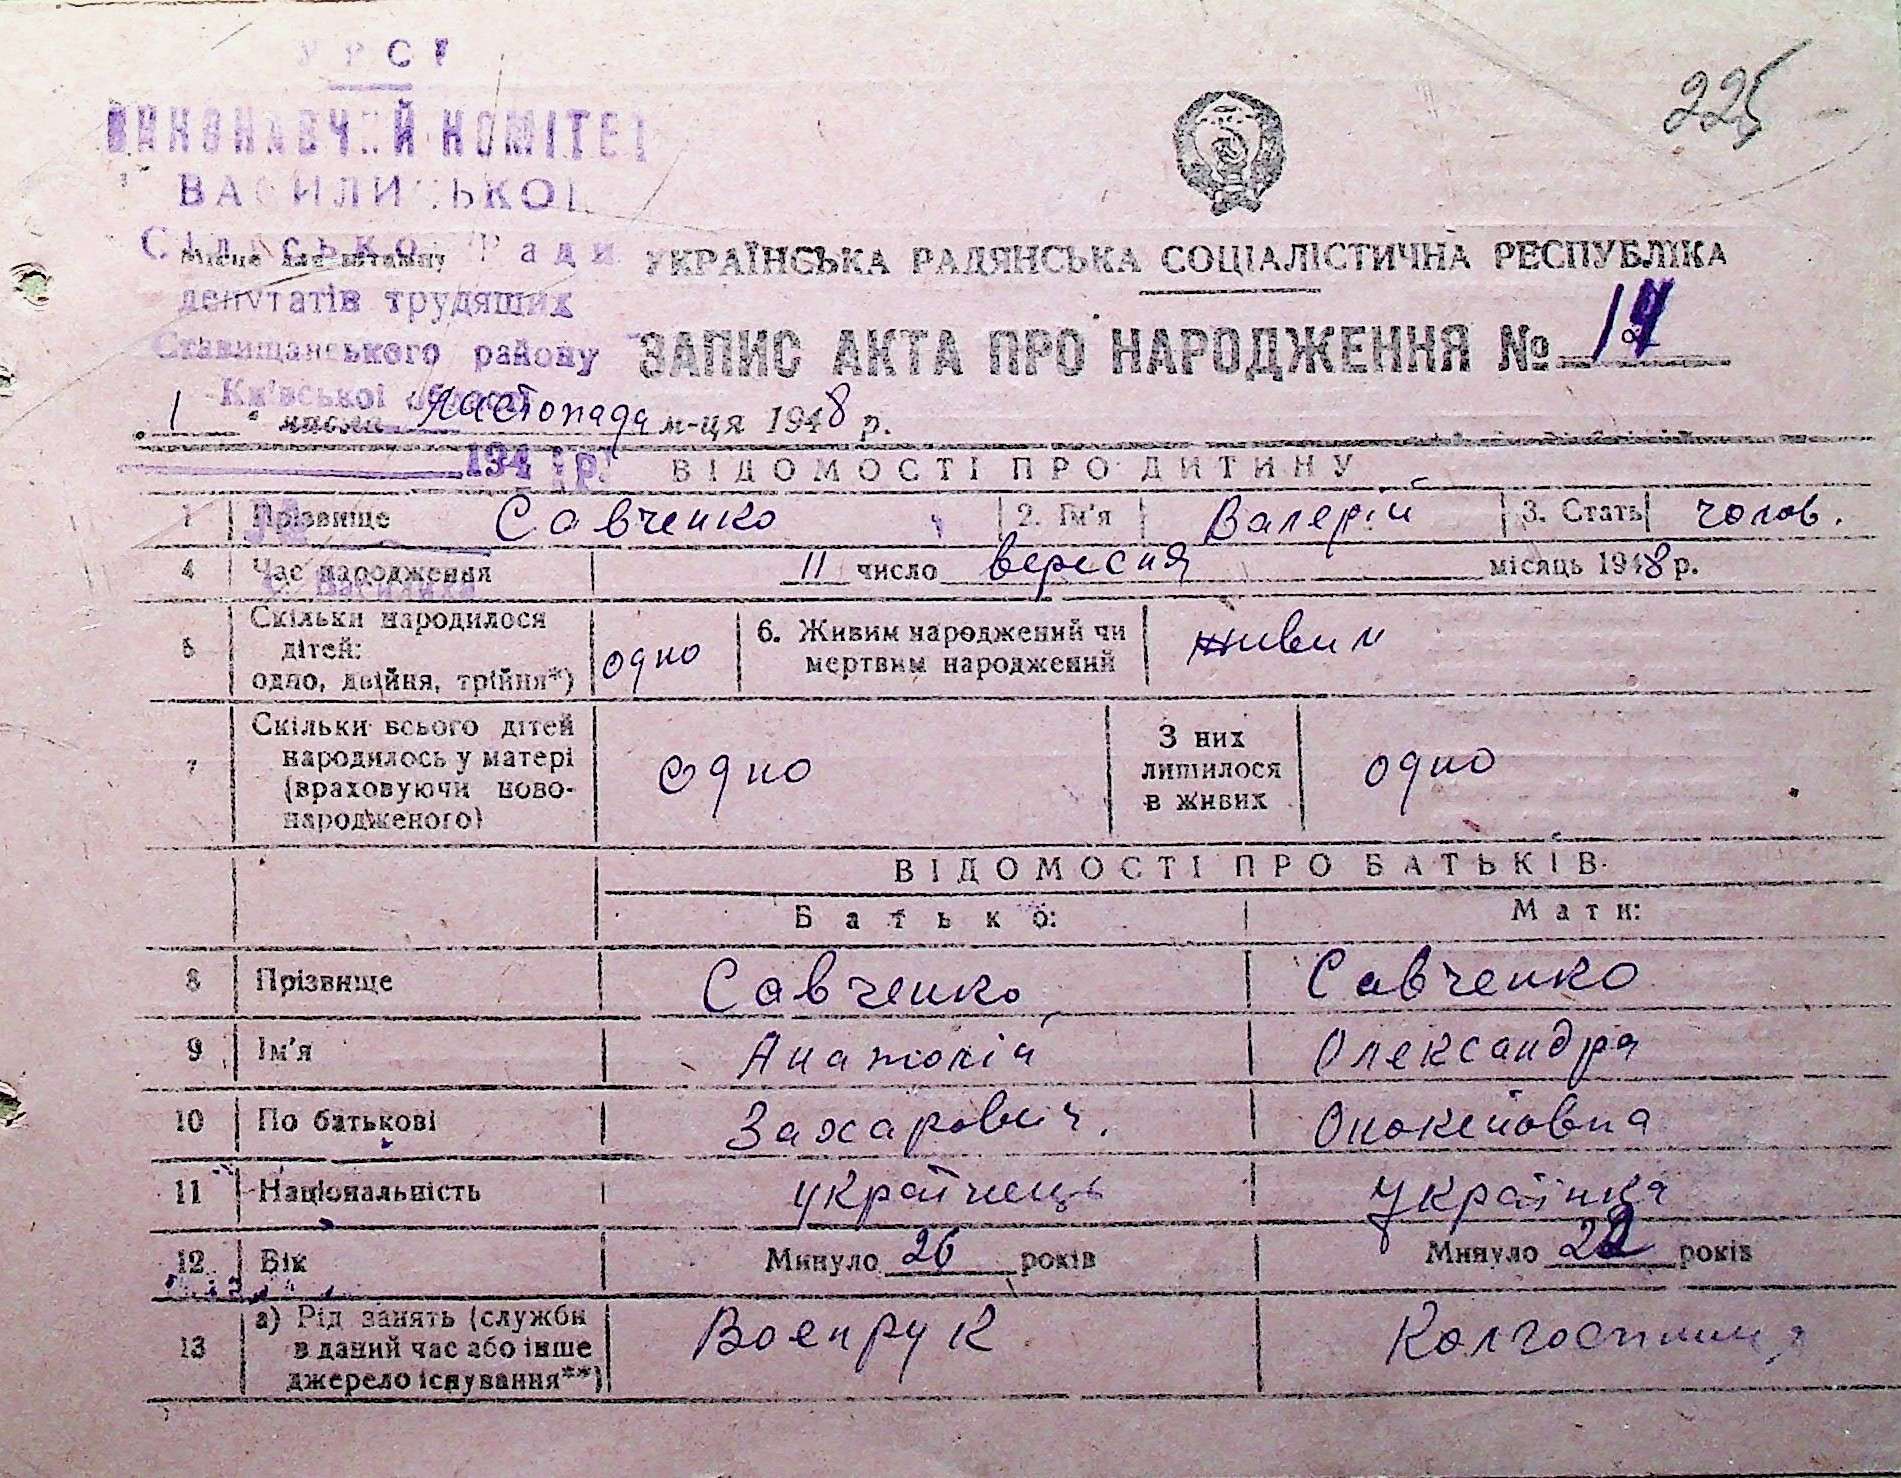 УРСР
225
ВИКОНАВЧИЙ КОМІТЕТ
ВАСИЛИСЬКОЇ
Сільської Ради
Місце для штампу
депутатів трудящих
Ставищанського району
Київської області
УКРАЇНСЬКА РАДЯНСЬКА СОЦІАЛІСТИЧНА РЕСПУБЛІКА
ЗАПИС АКТА ПРО НАРОДЖЕННЯ №
1 " числа Листопада м-ця 1948 р.
194 р.
ВІДОМОСТІ ПРО ДИТИНУ
1 Прізвище Савченко 2. Ім'я Валерій 3. Стать чолов.
4 Час народження 11 число вересня місяць 1948 р.
с. Василиха
5 Скільки народилося дітей: одно, двійня, трійня*) одно 6. Живим народжений чи мертвим народжений живим
7 Скільки всього дітей народилось у матері (враховуючи ново-народженого) одно З них лишилося в живих одно
ВІДОМОСТІ ПРО БАТЬКІВ
Батько: Мати:
8 Прізвище Савченко Савченко
9 Ім'я Анатолій Олександра
10 По батькові Захарович.
11 Національність українець українка
12 Вік Минуло 26 років Минуло 22 років
13 а) Рід занять (служби в даний час або інше джерело існування**) Военрук Колгоспниця